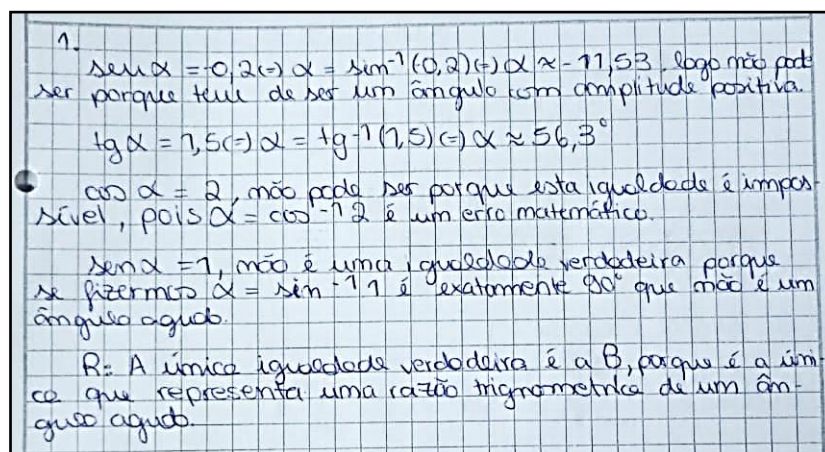 1.
senα = -0,2(=) α = sin⁻¹(0,2)(=) α ≈ -11,53, logo não pode
ser porque tem de ser um ângulo com amplitude positiva.
tgα = 1,5(=) α = tg⁻¹(1,5)(=) α ≈ 56,3°
cos α = 2, não pode ser porque esta igualdade é impos-
sível, pois α = cos⁻¹2 é um erro matemático.
senα = 1, não é uma igualdade verdadeira porque
se fizermos α = sin⁻¹1 é exatamente 90° que não é um
ângulo agudo.
R: A única igualdade verdadeira é a B, porque é a úni-
ca que representa uma razão trignometrica de um ân-
gulo agudo.